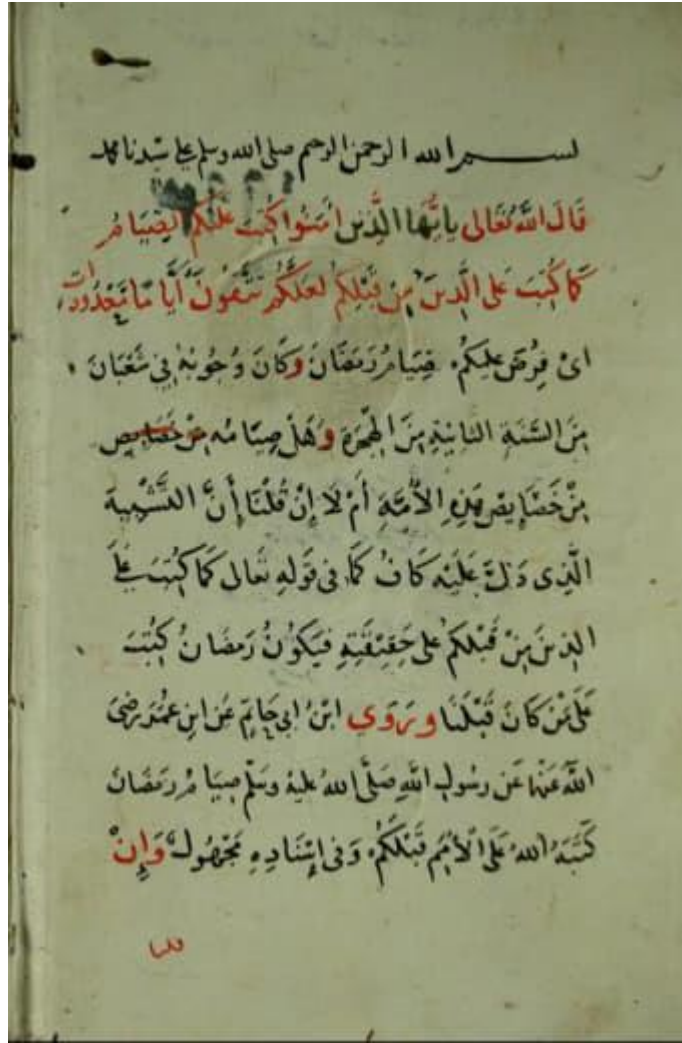 بسم الله الرحمن الرحيم صلى الله وسلم على سيدنا محمد
قَالَ اللَّهُ تَعَالَى يَاأَيُّهَا الَّذِينَ امَنُوا كُتِبَ عَلَيْكُم الصِّيَامُ
كَمَا كُتِبَ عَلَى الَّذِينَ مِن قَبْلِكُمْ لَعَلَّكُمْ تَتَّقُونَ أَيَّامًا مَعْدُودَات
اىْ فُرِضَ عليكُم صِيَامُ رَمَضَانَ وَكَانَ وُجُوبُهُ فِي شَعْبَانَ
مِنَ السَّنَةِ الثانِيَةِ مِنَ الْهِجْرَةِ وَهَلْ صِيَامُه مِنْ خَصَايِصِ
مِنْ خَصَايِصِ هَذِهِ الأُمَّةِ أَمْ لَا إِنْ قُلْنَا إِنَّ التَّشْبِيهَ
الَّذِى دَلَّتْ عَلَيْه كَافُ كَمَا فِى قَوْلِهِ تَعَالى كَمَا كُتِبَ عَلَى
الذِينَ مِنْ قَبْلِكُمْ عَلى حَقِيقَتِهِ فَيَكُونُ رَمَضَانُ كُتِبَ
عَلَى مَنْ كَانَ قَبْلَنَا وَرَوَي ابْنُ ابِي حَاتِمٍ عَنِ ابْنِ عُمَرَ رَضِيَ
اللَّهُ عَنْهما عَن رسُولِ اللَّهِ صَلَّى اللهُ عَليهِ وَسَلَّم صِيَامُ رَمَضَانَ
كَتَبَهُ اللهُ عَلَى الْأُمَمِ قَبْلَكُمْ وَفِى إِسْنَادِهِ مَجْهُولٌ وَإِنْ
قلنا